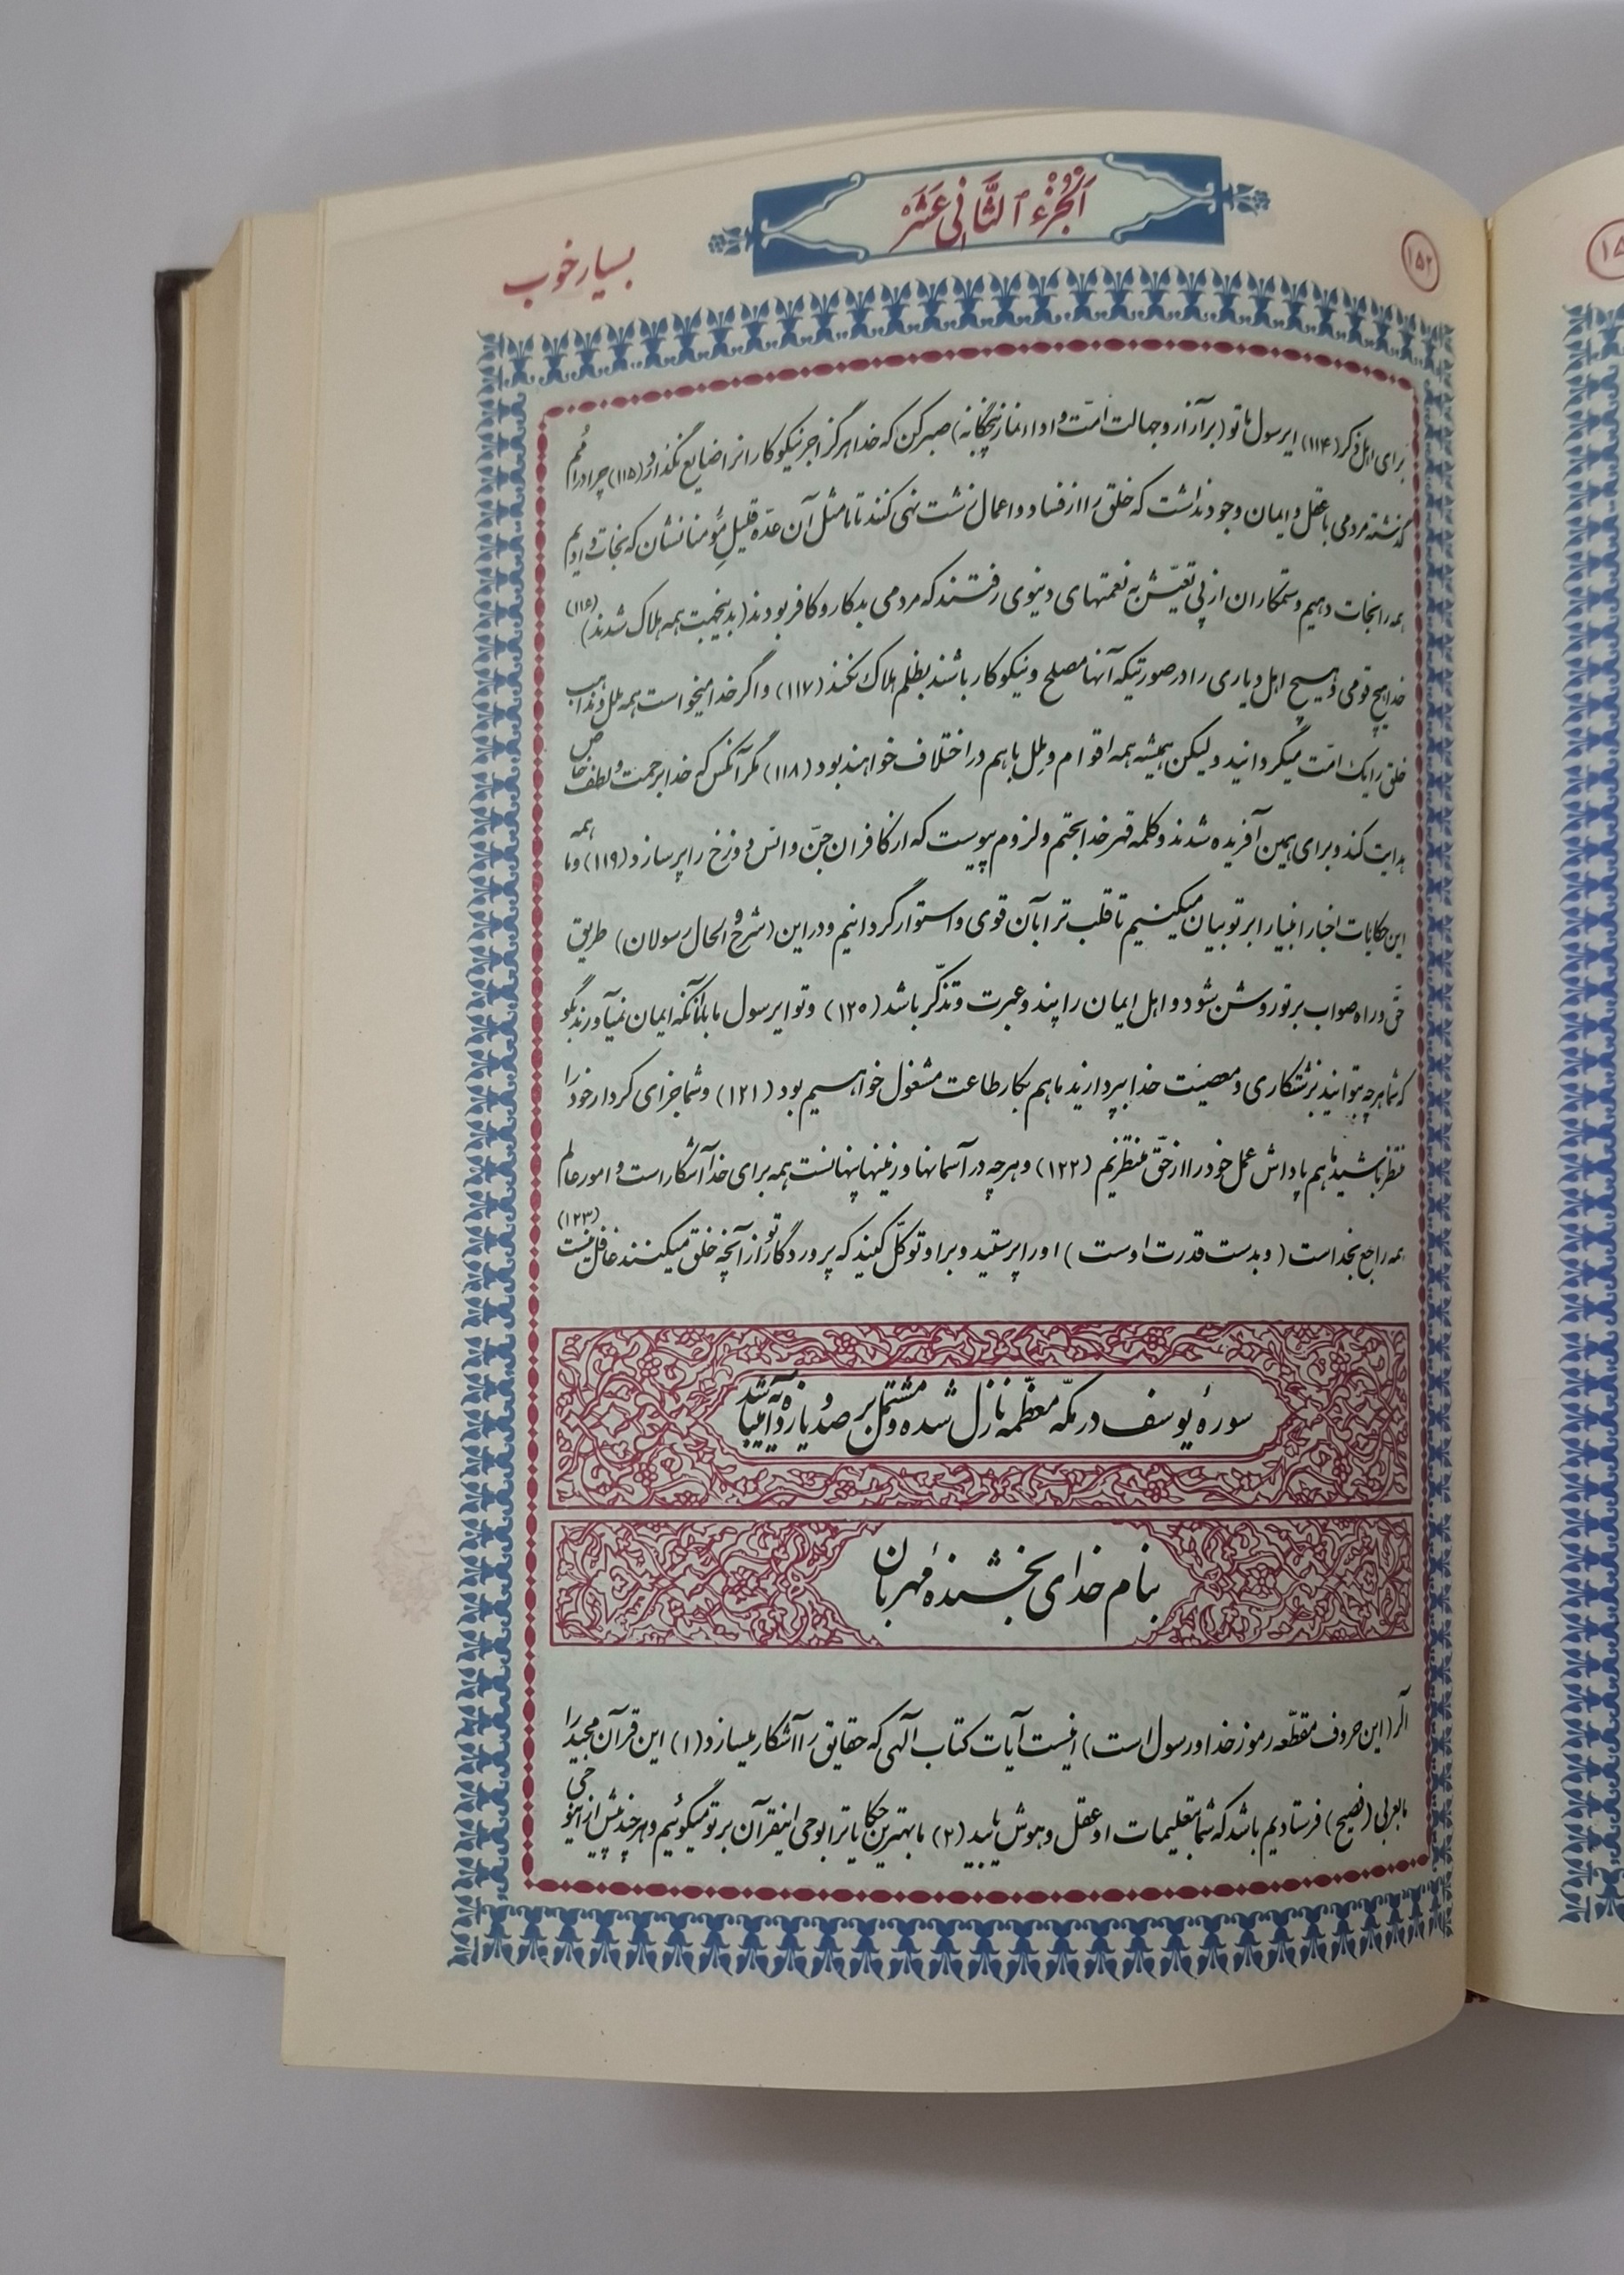 اَلْجُزْءُ ٱلثَّانِی عَشَرْ
بسیار خوب
۱۵۲
برای اهل ذکر (۱۱۴) ایرسول ما تو (بر آزار و جهالت امّت و اداء نماز پنجگانه) صبر کن که خدا هرگز اجر نیکوکارانرا ضایع نگذارد (۱۱۵) چرا در امم
گذشته مردمی با عقل و ایمان وجود نداشت که خلق را از فساد و اعمال زشت نهی کنند تا ما مثل آن عدّه قلیل مؤمنانشان که نجات دادیم
همه را نجات دهیم و ستمکاران از پی تعیّش به نعمتهای دنیوی رفتند که مردمی بدکار و کافر بودند (بدینجهت همه هلاک شدند) (۱۱۶)
خدا هیچ قومی و هیچ اهل دیاری را در صورتیکه آنها مصلح و نیکوکار باشند بظلم هلاک نکند (۱۱۷) و اگر خدا میخواست همه ملل و مذاهب
خلق را یک امّت میگردانید ولیکن همیشه همه اقوام و ملل با هم در اختلاف خواهند بود (۱۱۸) مگر آنکس که خدا برحمت و لطف خاص
هدایت کند و برای همین آفریده شدند و کلمه قهر خدا بحتم و لزوم پیوست که از کافران جنّ و انس دوزخ را پر سازد (۱۱۹) و ما همه
این حکایات اخبار انبیا را بر تو بیان میکنیم تا قلب ترا بآن قوی و استوار گردانیم و در این (شرح و الحال رسولان) طریق
حقّ و راه صواب بر تو روشن شود و اهل ایمان را پند و عبرت و تذکّر باشد (۱۲۰) و تو ایرسول ما با آنانکه ایمان نمیآورند بگو
که شما هر چه بتوانید بزشتکاری و معصیت خدا بپردازید ما هم بکار طاعت مشغول خواهیم بود (۱۲۱) و شما جزای کردار خود را
منتظر باشید ما هم پاداش عمل خود را از حقّ منتظریم (۱۲۲) و هر چه در آسمانها و زمینها پنهانست همه برای خدا آشکار است و امور عالم
همه راجع بخداست (و بدست قدرت اوست) او را پرستید و بر او توکّل کنید که پروردگار تو از آنچه خلق میکنند غافل نیست (۱۲۳)
سورهٔ یوسف در مکّه معظّمه نازل شده و مشتمل بر صد و یازده آیه میباشد
بنام خدای بخشندهٔ مهربان
الر (این حروف مقطّعه رموز خدا و رسول است) اینست آیات کتاب الهی که حقایق را آشکار میسازد (۱) این قرآن مجید را
ما بعربی (فصیح) فرستادیم باشد که شما بتعلیمات او عقل و هوش یابید (۲) ما بهترین حکایات را بوحی اینقرآن بر تو میگوئیم و هر چند پیش از این وحی